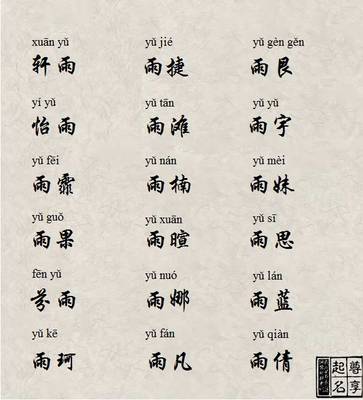 xuān yǔ yǔ jié yǔ gèn gěn
轩雨 雨捷 雨艮
yí yǔ yǔ tān yǔ yǔ
怡雨 雨滩 雨宇
yǔ fēi yǔ nán yǔ mèi
雨霏 雨楠 雨妹
yǔ guǒ yǔ xuān yǔ sī
雨果 雨暄 雨思
fēn yǔ yǔ nuó yǔ lán
芬雨 雨娜 雨蓝
yǔ kē yǔ fán yǔ qiàn
雨珂 雨凡 雨倩
尊享
起名